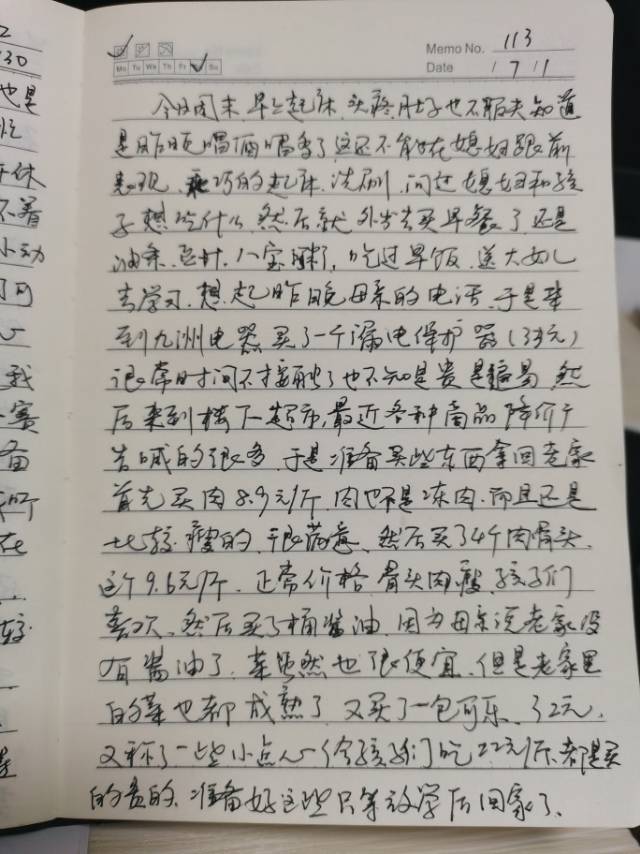 Memo No. 113
Mo Tu We Th Fr Su
Date 1711
今日周末,早上起床,头疼,肚子也不服夫知道
是昨晚喝酒喝多了,这还不能在媳妇跟前
表现,乖巧的起床,洗刷,问过媳妇和孩
子想吃什么,然后就外出去买早餐了,还是
油条,豆汁,八宝粥,吃过早饭,送大女儿
去学习,想起昨晚母亲的电话,于是来
到九洲电器买了一个漏电保护器(38元)
很长时间不接触了也不知是贵是便易,然
后来到楼下超市,最近各种商品降价广
告喊的很多,于是准备买些东西拿回老家
首先买肉8.9元/斤,肉也不是冻肉,而且还是
比较瘦的,很满意,然后买了4个肉骨头,
这个9.6元/斤,正常价格,骨头肉瘦,孩子们
喜欢,然后买了桶酱油,因为母亲说老家没
有酱油了,菜虽然也很便宜,但是老家里
的菜也都成熟了,又买了一包可乐,12元,
又称了一些小点心给孩子们吃22元/斤,都是买
的贵的,准备好这些只等放学后回家了,
2
30
也是
忙
休
不着
小动
可
我
赛
备
听
在
较